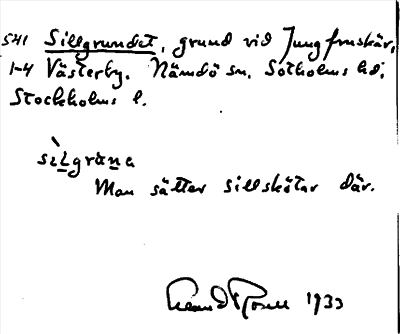 541 Sillgrundet, grund vid Jungfruskär,
1-4 Västerby. Nämdö sn. Sotholms hd.
Stockholms l.
sìlgruna
Man sätter sillskötar där.
1933